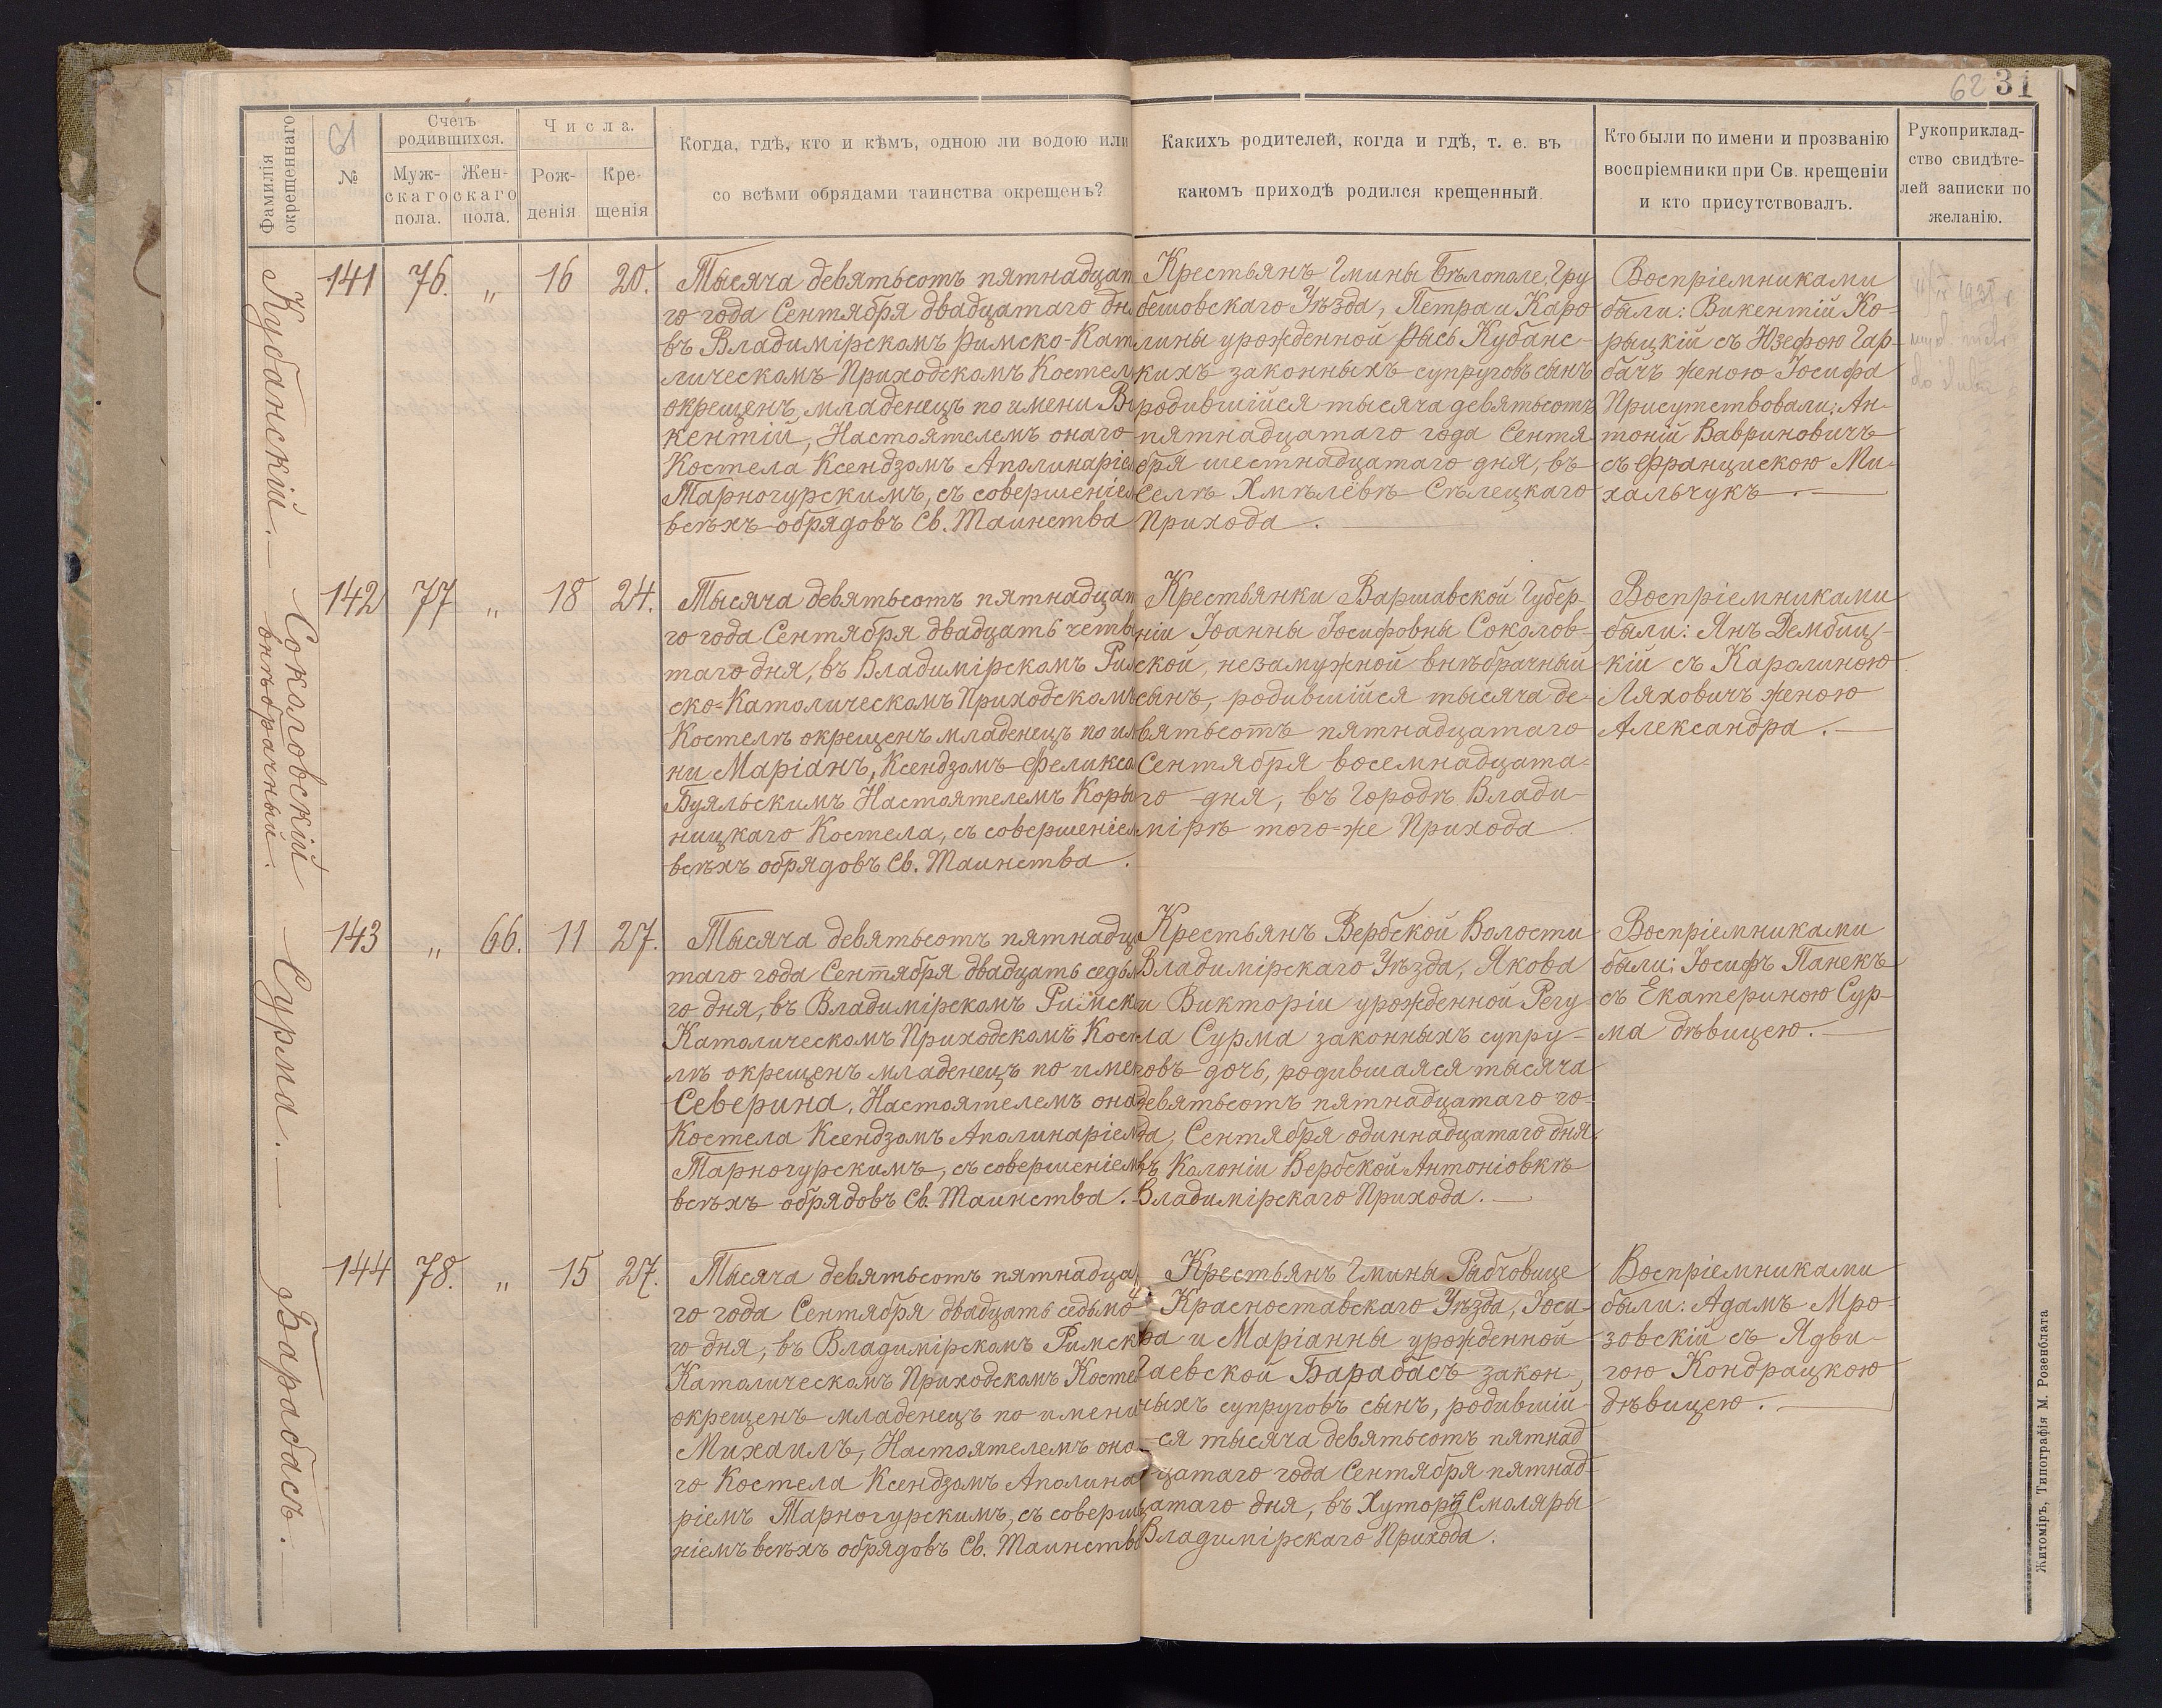 62 31
Фамилія
окрещеннаго
61
№
Счетъ
родившихся.
Муж-
скаго
пола.
Жен-
скаго
пола.
Числа.
Рож-
денія
Кре-
щенія
Когда, гдѣ, кто и кѣмъ, одною ли водою или
со всѣми обрядами таинства окрещенъ?
Какихъ родителей, когда и гдѣ, т. е. въ
какомъ приходѣ родился крещенный.
Кто были по имени и прозванію
воспріемники при Св. крещеніи
и кто присутствовалъ.
Рукоприклад-
ство свидѣте-
лей записки по
желанію.
Кубанскій.
141 76. „ 16 20.
Тысяча девятьсотъ пятнадцат
го года Сентября двадцатаго дн
въ Владимірскомъ Римско-Кат
лическомъ Приходскомъ Костел
окрещенъ младенецъ по имени Ви
кентій, Настоятелемъ онаго
Костела Ксендзомъ Аполинаріем
Тарногурскимъ, съ совершеніем
всѣхъ обрядовъ Св. Таинства
Крестьянъ Гмины Бѣлополе, Гру
бешовскаго Уѣзда, Петра и Каро
лины урожденной Рысь Кубанс-
кихъ законныхъ супруговъ сынъ
родившійся тысяча девятьсотъ
пятнадцатаго года Сентя
бря шестнадцатаго дня, въ
Селѣ Хмѣлёвѣ Сѣлецкаго
Прихода.
Воспріемниками
были: Викентій Ко-
рыцкій съ Юзефою Гар-
бачъ женою Іосифа
Присутствовали: Ан-
тоній Вавриновичъ
съ Францискою Ми-
хальчукъ.
Соколовскій
внѣбрачный.
142 77 „ 18 24.
Тысяча девятьсотъ пятнадцат
го года Сентября двадцать четве
таго дня, въ Владимірскомъ Рим
ско-Католическомъ Приходскомъ
Костелѣ окрещенъ младенецъ по им
ни Маріанъ, Ксендзомъ Феликсо
Буяльскимъ Настоятелемъ Коры
ницкаго Костела, съ совершеніем
всѣхъ обрядовъ Св. Таинства.
Крестьянки Варшавской Губер-
ніи Іоанны Іосифовны Соколов-
ской, незамужной внѣбрачный
сынъ, родившійся тысяча де-
вятьсотъ пятнадцатаго
Сентября восемнадцата-
го дня, въ Городѣ Влади-
мірѣ того-же Прихода.
Воспріемниками
были: Янъ Дембиц-
кій съ Каролиною
Ляховичъ женою
Александра.
Сурма.
143 „ 66. 11 27.
Тысяча девятьсотъ пятнадца
таго года Сентября двадцать седьм
го дня, въ Владимірскомъ Римск
Католическомъ Приходскомъ Косте
лѣ окрещенъ младенецъ по имен
Северина, Настоятелемъ она
Костела Ксендзомъ Аполинаріем
Тарногурскимъ, съ совершеніем
всѣхъ обрядовъ Св. Таинства.
Крестьянъ Вербской Волости
Владимірскаго Уѣзда, Якова
и Викторіи урожденной Регу-
ла Сурма законныхъ супру-
говъ дочь, родившаяся тысяча
девятьсотъ пятнадцатаго го-
да, Сентября одиннадцатаго дня,
въ Колоніи Вербской Антоніовкѣ
Владимірскаго Прихода.
Воспріемниками
были: Іосифъ Панекъ
съ Екатериною Сур-
ма дѣвицею.
Барабасъ.
144 78. „ 15 27.
Тысяча девятьсотъ пятнадца
го года Сентября двадцать седьмо
го дня, въ Владимірскомъ Римск
Католическомъ Приходскомъ Косте
окрещенъ младенецъ по имени
Михаилъ, Настоятелемъ она-
го Костела Ксендзомъ Аполина
ріемъ Тарногурскимъ, съ соверше
ніемъ всѣхъ обрядовъ Св. Таинств
Крестьянъ Гмины Рыбчовице
Красноставскаго Уѣзда, Іоси-
фа и Маріанны урожденной
Гаевской Барабасъ закон-
ныхъ супруговъ сынъ, родившій-
ся тысяча девятьсотъ пятнад
цатаго года Сентября пятнад-
цатаго дня, въ Хуторѣ Смоляры
Владимірскаго Прихода.
Воспріемниками
были: Адамъ Мро-
зовскій съ Ядви-
гою Кондрацкою
дѣвицею.
Житоміръ, Типографія М. Розенблата